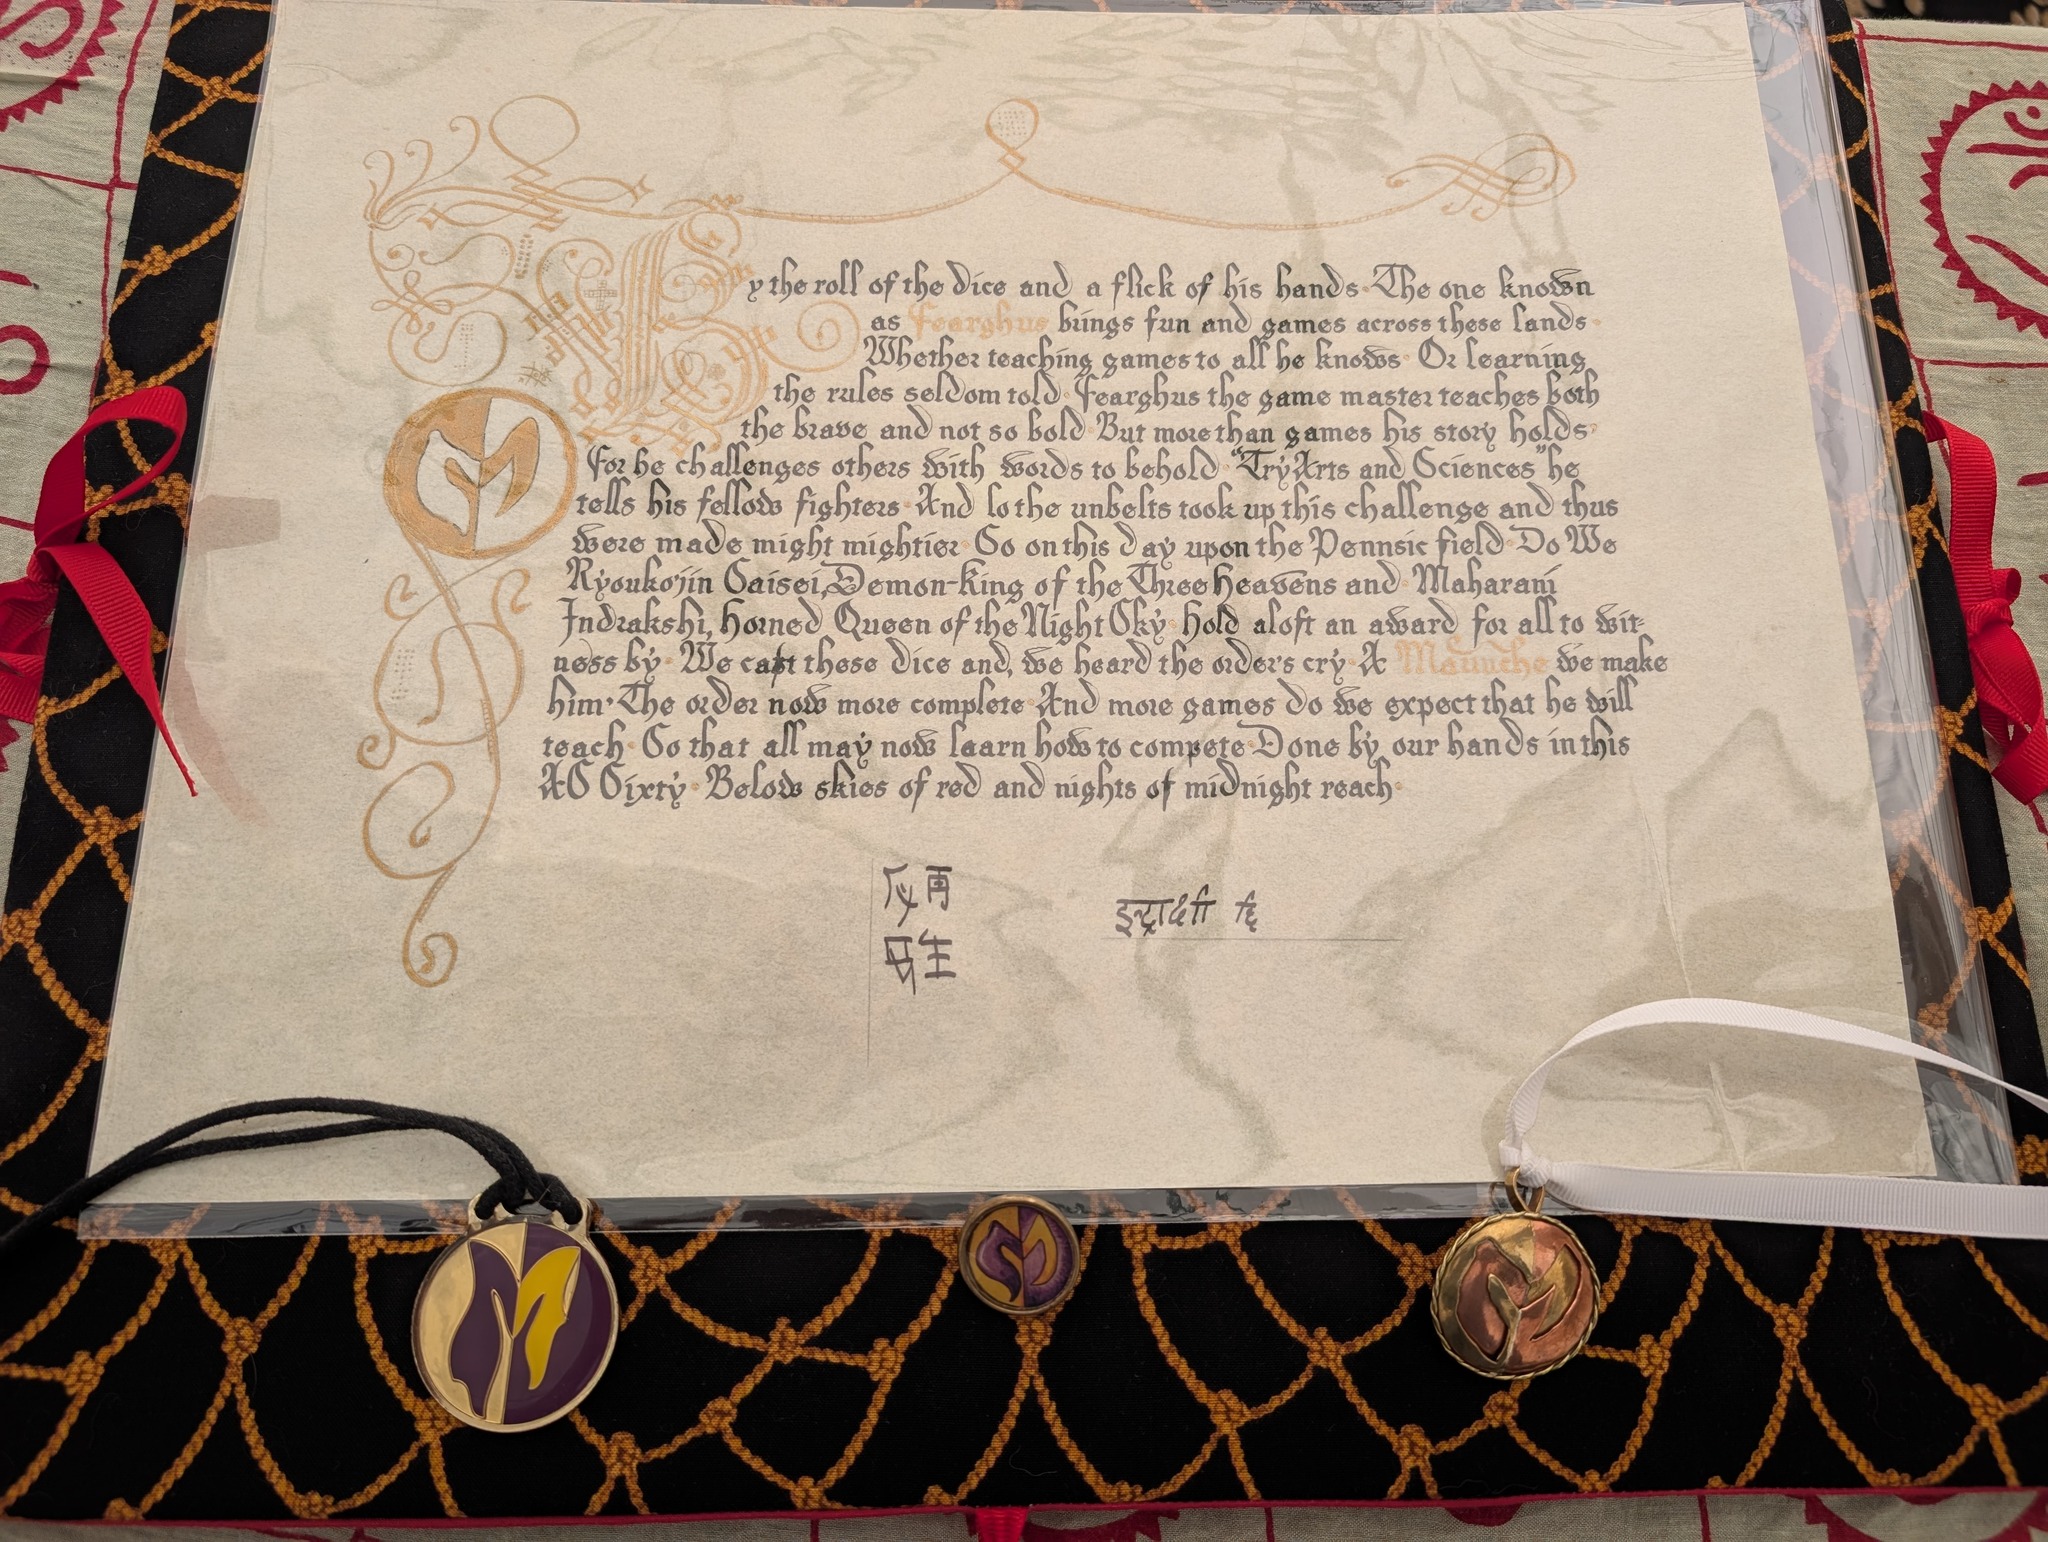 By the roll of the dice and a flick of his hands· The one known
as Fearghus brings fun and games across these lands·
Whether teaching games to all he knows· Or learning
the rules seldom told· Fearghus the game master teaches both
the brave and not so bold· But more than games his story holds·
For he challenges others with words to behold· "Try Arts and Sciences" he
tells his fellow fighters· And lo the unbelts took up this challenge and thus
were made might mightier· So on this day upon the Pennsic field· Do We
Ryoukojin Saisei, Demon-King of the Three Heavens and Maharani
Indrakshi, Horned Queen of the Night Sky· Hold aloft an award for all to wit-
ness by· We cast these dice and, we heard the orders cry· A Maunche we make
him· The order now more complete· And more games do we expect that he will
teach· So that all may now learn how to compete· Done by our hands in this
AS Sixty· Below skies of red and nights of midnight reach·
再
生